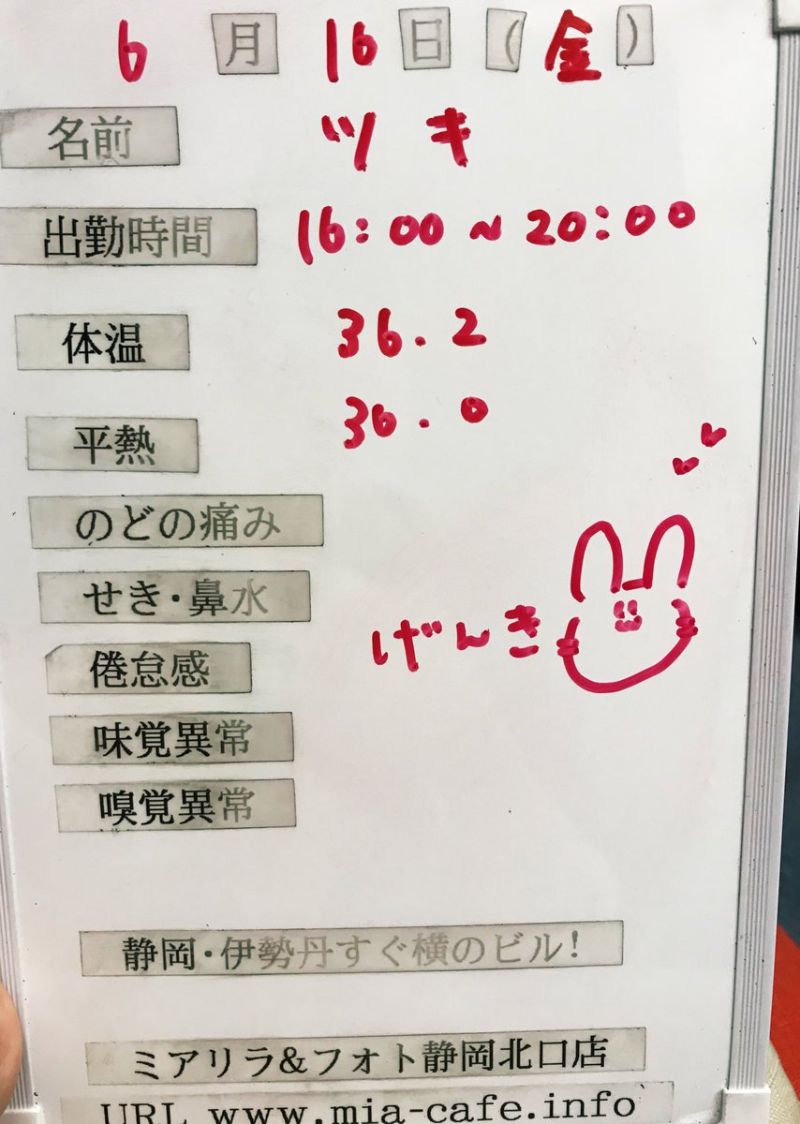 6月16日(金)
名前 ツキ
出勤時間 16:00~20:00
体温 36.2
平熱 36.0
のどの痛み
せき・鼻水
げんき
倦怠感
味覚異常
嗅覚異常
静岡・伊勢丹すぐ横のビル!
ミアリラ&フォト静岡北口店
URL www.mia-cafe.info